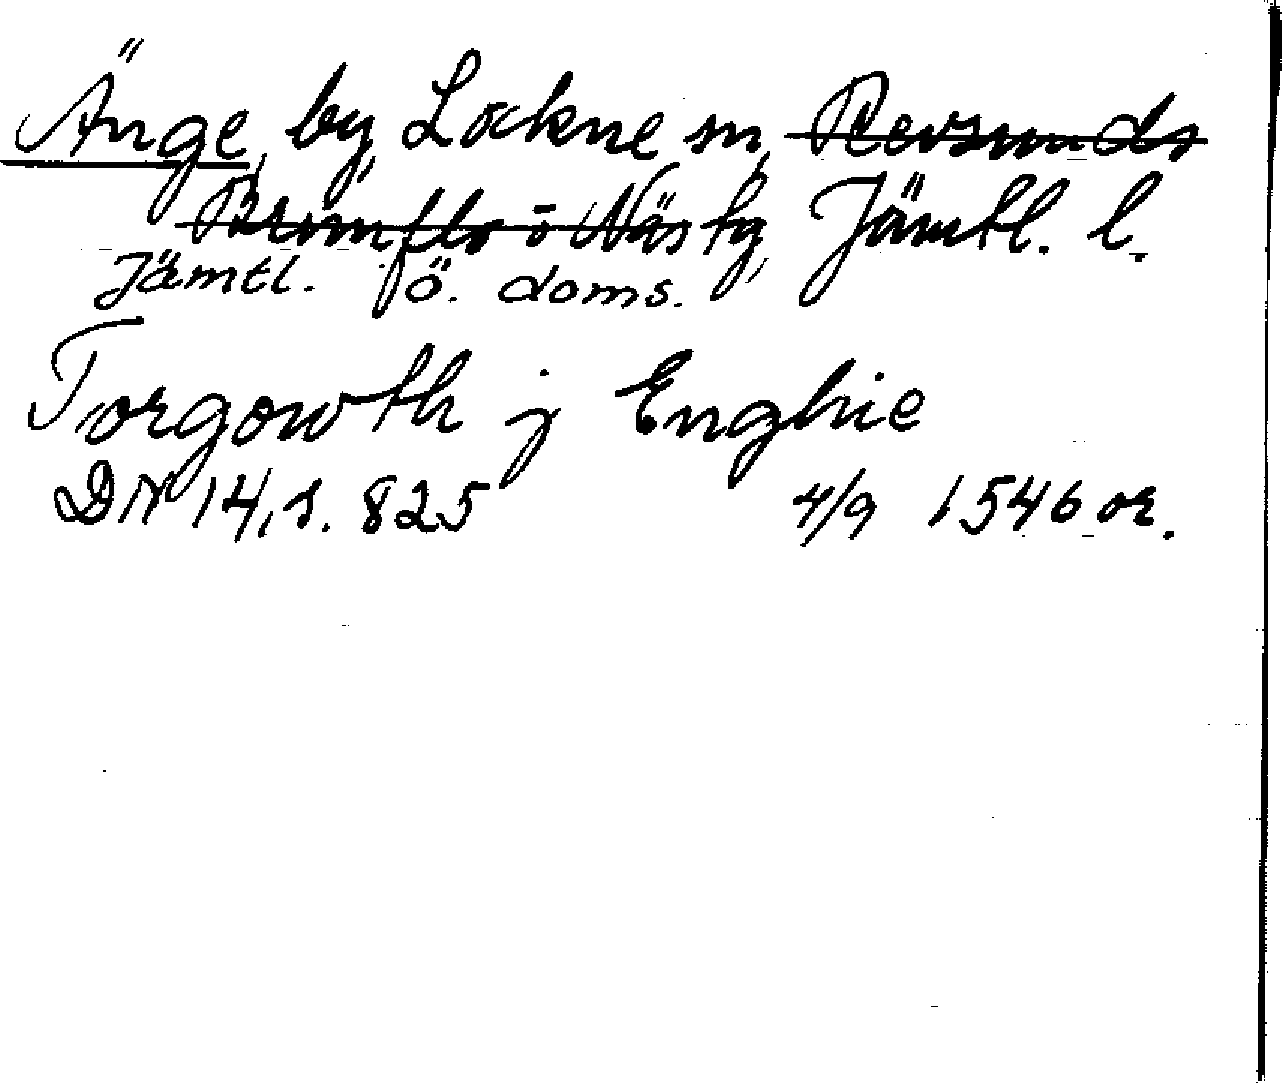 Änge, by, Lockne sn, Revsunds
Brunflo o Näs tg, Jämtl. l.
Jämtl. ö. doms.
Torgowth j Enghie
DN 14, s. 825 4/9 1546 or.